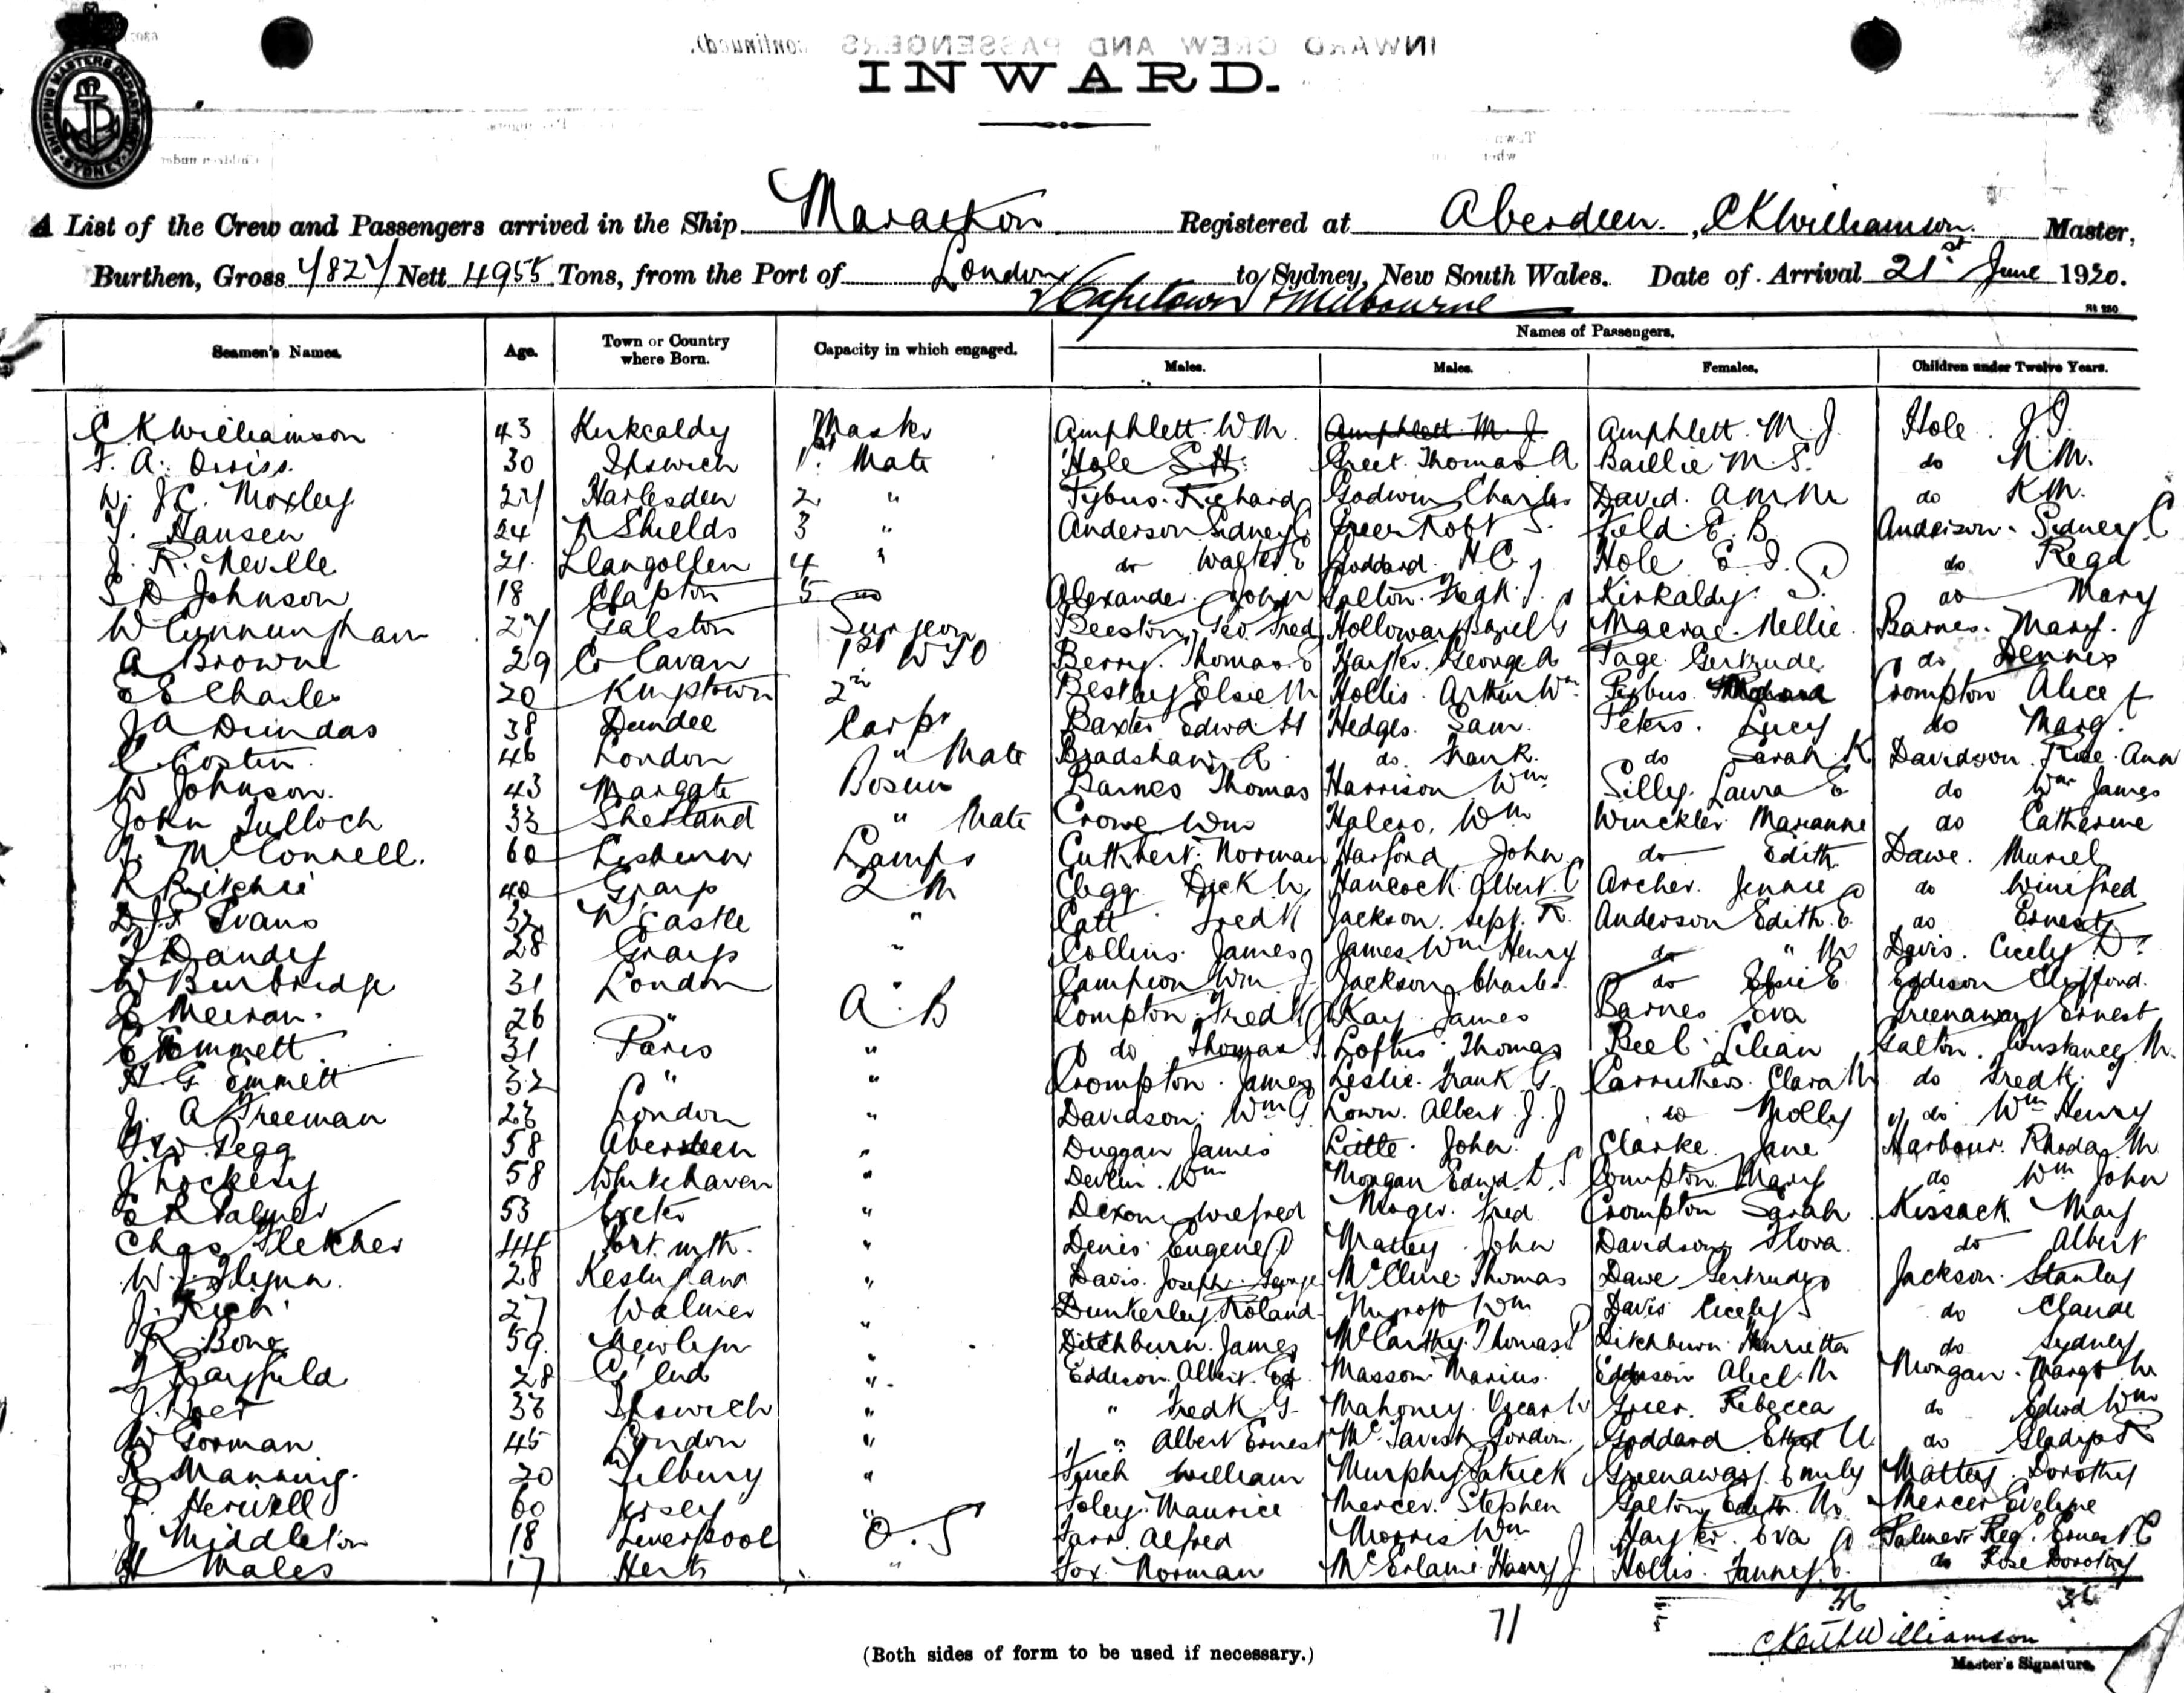 INWARD CREW AND PASSENGERS (continued).
INWARD.
SHIPPING MASTERS DEPARTMENT SYDNEY
A List of the Crew and Passengers arrived in the Ship Marathon Registered at Aberdeen, C K Williamson Master,
Burthen, Gross 7827 Nett 4955 Tons, from the Port of London to Sydney, New South Wales. Date of Arrival 21st June 1920.
Capetown & Melbourne
St 250
Seamen's Names. Age. Town or Country where Born. Capacity in which engaged. Names of Passengers.
Males. Males. Females. Children under Twelve Years.
C K Williamson 43 Kirkcaldy Master Amphlett W M. Amphlett M. J. Amphlett M. J. Hole J.
30 Ipswich 1st Mate Hole S H. Greet Thomas A Baillie M. S. do N M.
W. J C. Moxley 27 Harlesden 2 " Pybus Richard Godwin Charles David A M M do K M.
T. Hansen 24 N Shields 3 " Anderson Sidney C Greer Robt S. Field E. B. Anderson Sidney C
J. R. Neville 21 Llangollen 4 " do Walter E Goddard H C Hole E J. do Regd
S D Johnson 18 Clapton 5 Alexander John Galton Fredk J. Kirkaldy S. do Mary
W Cunningham 27 Galston Surgeon Beeston Geo Fred Holloway Bazil G Macrae Nellie Barnes Mary.
A Browne 29 Co Cavan 1st W T O Berry Thomas E Hayter George A Page Gertrude do Dennis
E E Charles 20 2nd Bestley Elsie M Hollis Arthur Wm Pybus Crompton Alice
J A Dundas 38 Dundee Carpr Baxter Edwd H Hedges Sam. Peters. Lucy do Marg.
C Costin 46 London " Mate Bradshaw A do Frank do Sarah K Davidson Ann
W Johnson. 43 Margate Bosun Barnes Thomas Harrison Wm Silley Laura E do Wm James
John Tulloch 33 Shetland " Mate Crowe Wm Halcro, Wm Winckler Marianne do Catherine
J. McConnell. 60 Lisburn Lamps Cuthbert Norman Harford John do Edith Dawe. Muriel
R Ritchie 40 Grays Q M Clegg Dick W Hancock Albert C Archer Jennie do Winifred
D. J. Evans 32 N Castle " Catt Fredk Jackson Sept. R. Anderson Edith E. do Ernest
Dandy 28 Grays " Collins James J James Wm Henry do " M Davis. Cicely D.
W Burbridge 31 London Campion Wm Jackson Charles do Elsie E Eddison Clifford.
26 " A. B Compton Fredk Kay James Barnes Eva Greenaway Ernest
E Emmett 31 Paris " do Thomas Loftus Thomas Beel Lilian Galton. Constance M.
H. G Emmett 32 " " Crompton James Leslie Frank G. Carruthers Clara M do Fredk
J. A Freeman 23 London " Davidson Wm G Lown. Albert J. J do Molly do Wm Henry
Pegg 58 Aberdeen " Duggan James Little John Clarke Jane Harbour Rhoda M
J Lockery 58 Whitehaven " Devlin Wm Morgan Edwd Compton Mary do Wm John
E R Palmer 53 Exeter " Dixon Wilfred Moger Fred Crompton Sarah Kissack May
Chas Fletcher 44 Port. mth. " Denis Eugene Mattey John Davidson Flora do Albert
W. J. Flynn. 28 " Davis Joseph George McClure Thomas Dawe Gertrude Jackson Stanley
J. Rich 27 Walmer " Dunkerley Roland Wm Davis Cicely S do Claude
R Bone 59 Newlyn " Ditchburn James McCarthy Thomas Ditchburn Henrietta do Sydney
Rayfield 28 " Eddison Albert Ed. Masson Marius. Eddison M Morgan Margt M
33 Ipswich " " Fredk G. Mahoney Oscar W Greer. Rebecca do Edwd Wm
W Gorman 45 London " " Albert Ernest McTavish Gordon. Goddard Ethel do Gladys
R Manning. 20 Tilbury " William Murphy Patrick Greenaway Emily Mattey Dorothy
60 " Foley Maurice Mercer. Stephen Galton Edith M. Mercer Eveline
J Middleton 18 Liverpool O. S Farr Alfred Morris Wm Hayter Eva Palmer Reg. Ernest C
H Males 17 Herts " Fox Norman Harry J Hollis Fanny E. do Rose Dorothy
71 36 36
(Both sides of form to be used if necessary.)
C Keith Williamson
Master's Signature.